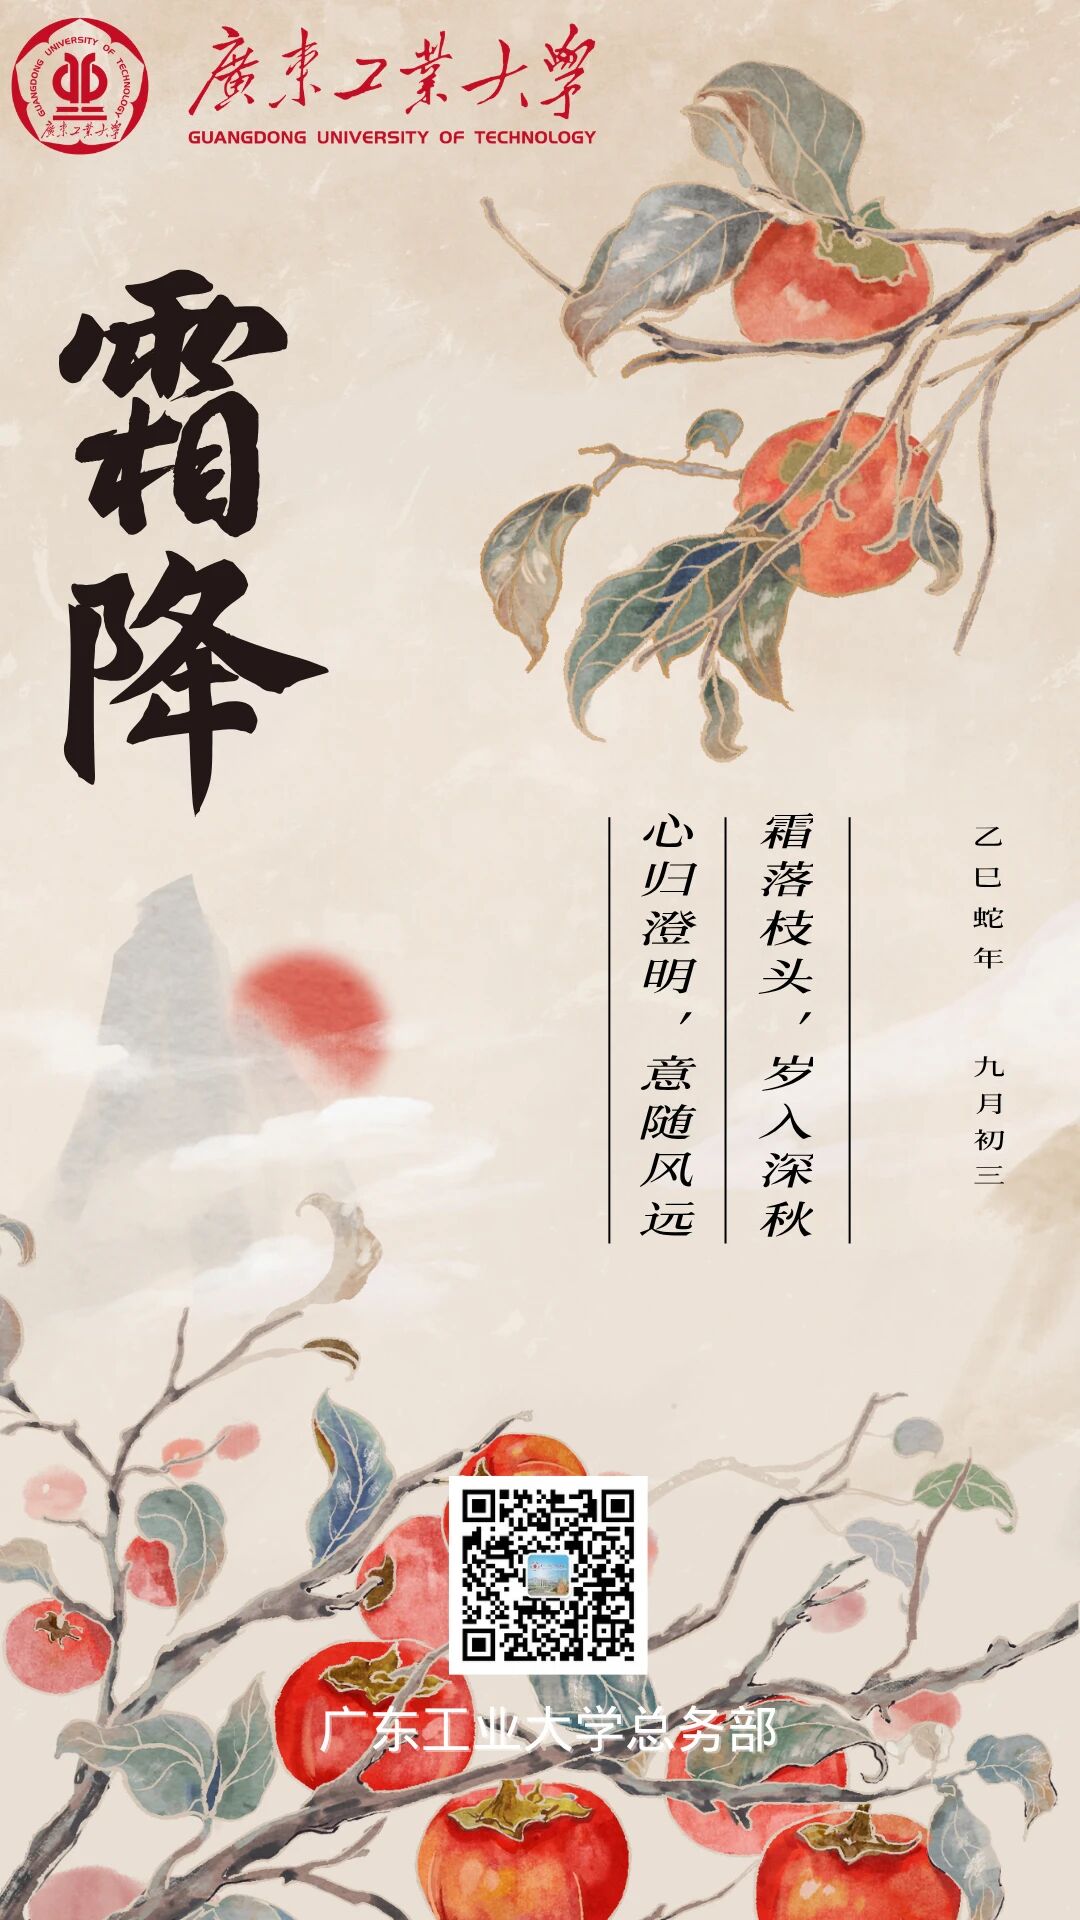 GUANGDONG UNIVERSITY OF TECHNOLOGY
廣東工業大學
廣東工業大學
GUANGDONG UNIVERSITY OF TECHNOLOGY
霜降
乙巳蛇年 九月初三
霜落枝头，岁入深秋
心归澄明，意随风远
广东工业大学总务部